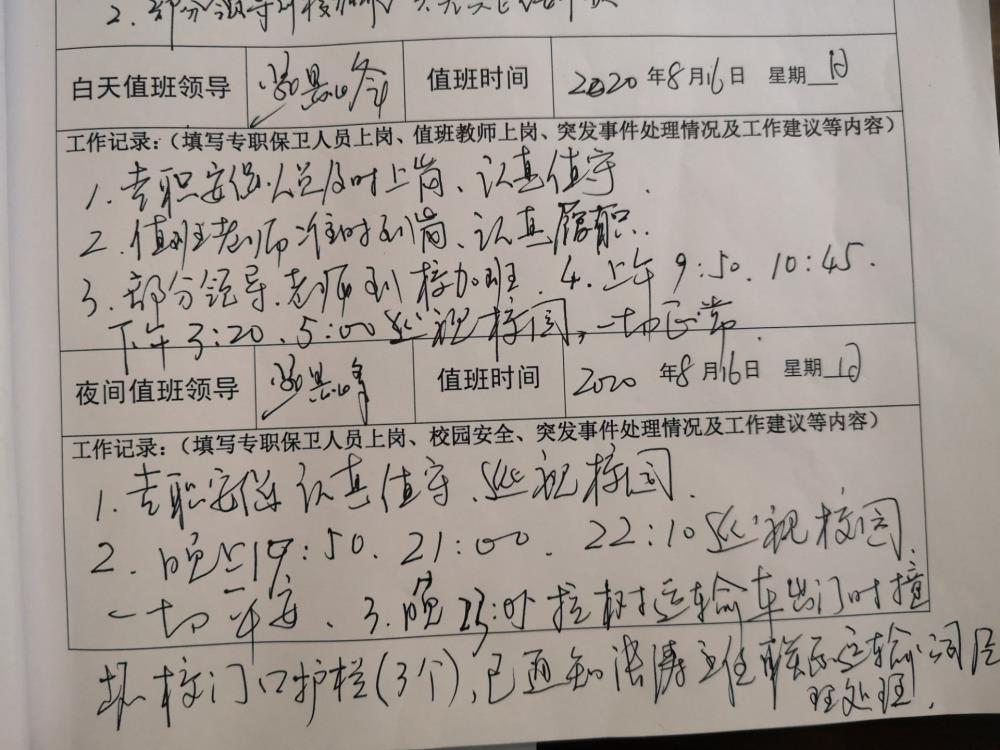 2. 部分领导到校加班
白天值班领导 值班时间 2020年8月16日 星期 日
工作记录：（填写专职保卫人员上岗、值班教师上岗、突发事件处理情况及工作建议等内容）
1. 专职安保人员及时上岗、认真值守.
2. 值班老师准时到岗、认真履职.
3. 部分领导.老师到校加班. 4. 上午9:50. 10:45.
下午3:20、5:00巡视校园，一切正常.
夜间值班领导 值班时间 2020年8月16日 星期 日
工作记录：（填写专职保卫人员上岗、校园安全、突发事件处理情况及工作建议等内容）
1. 专职安保认真值守、巡视校园.
2. 晚上19:50. 21:00. 22:10巡视校园.
一切平安. 3. 晚23:时 拉树运输车出门时撞
坏校门口护栏(3个),已通知 主任联系运输公司
处理.